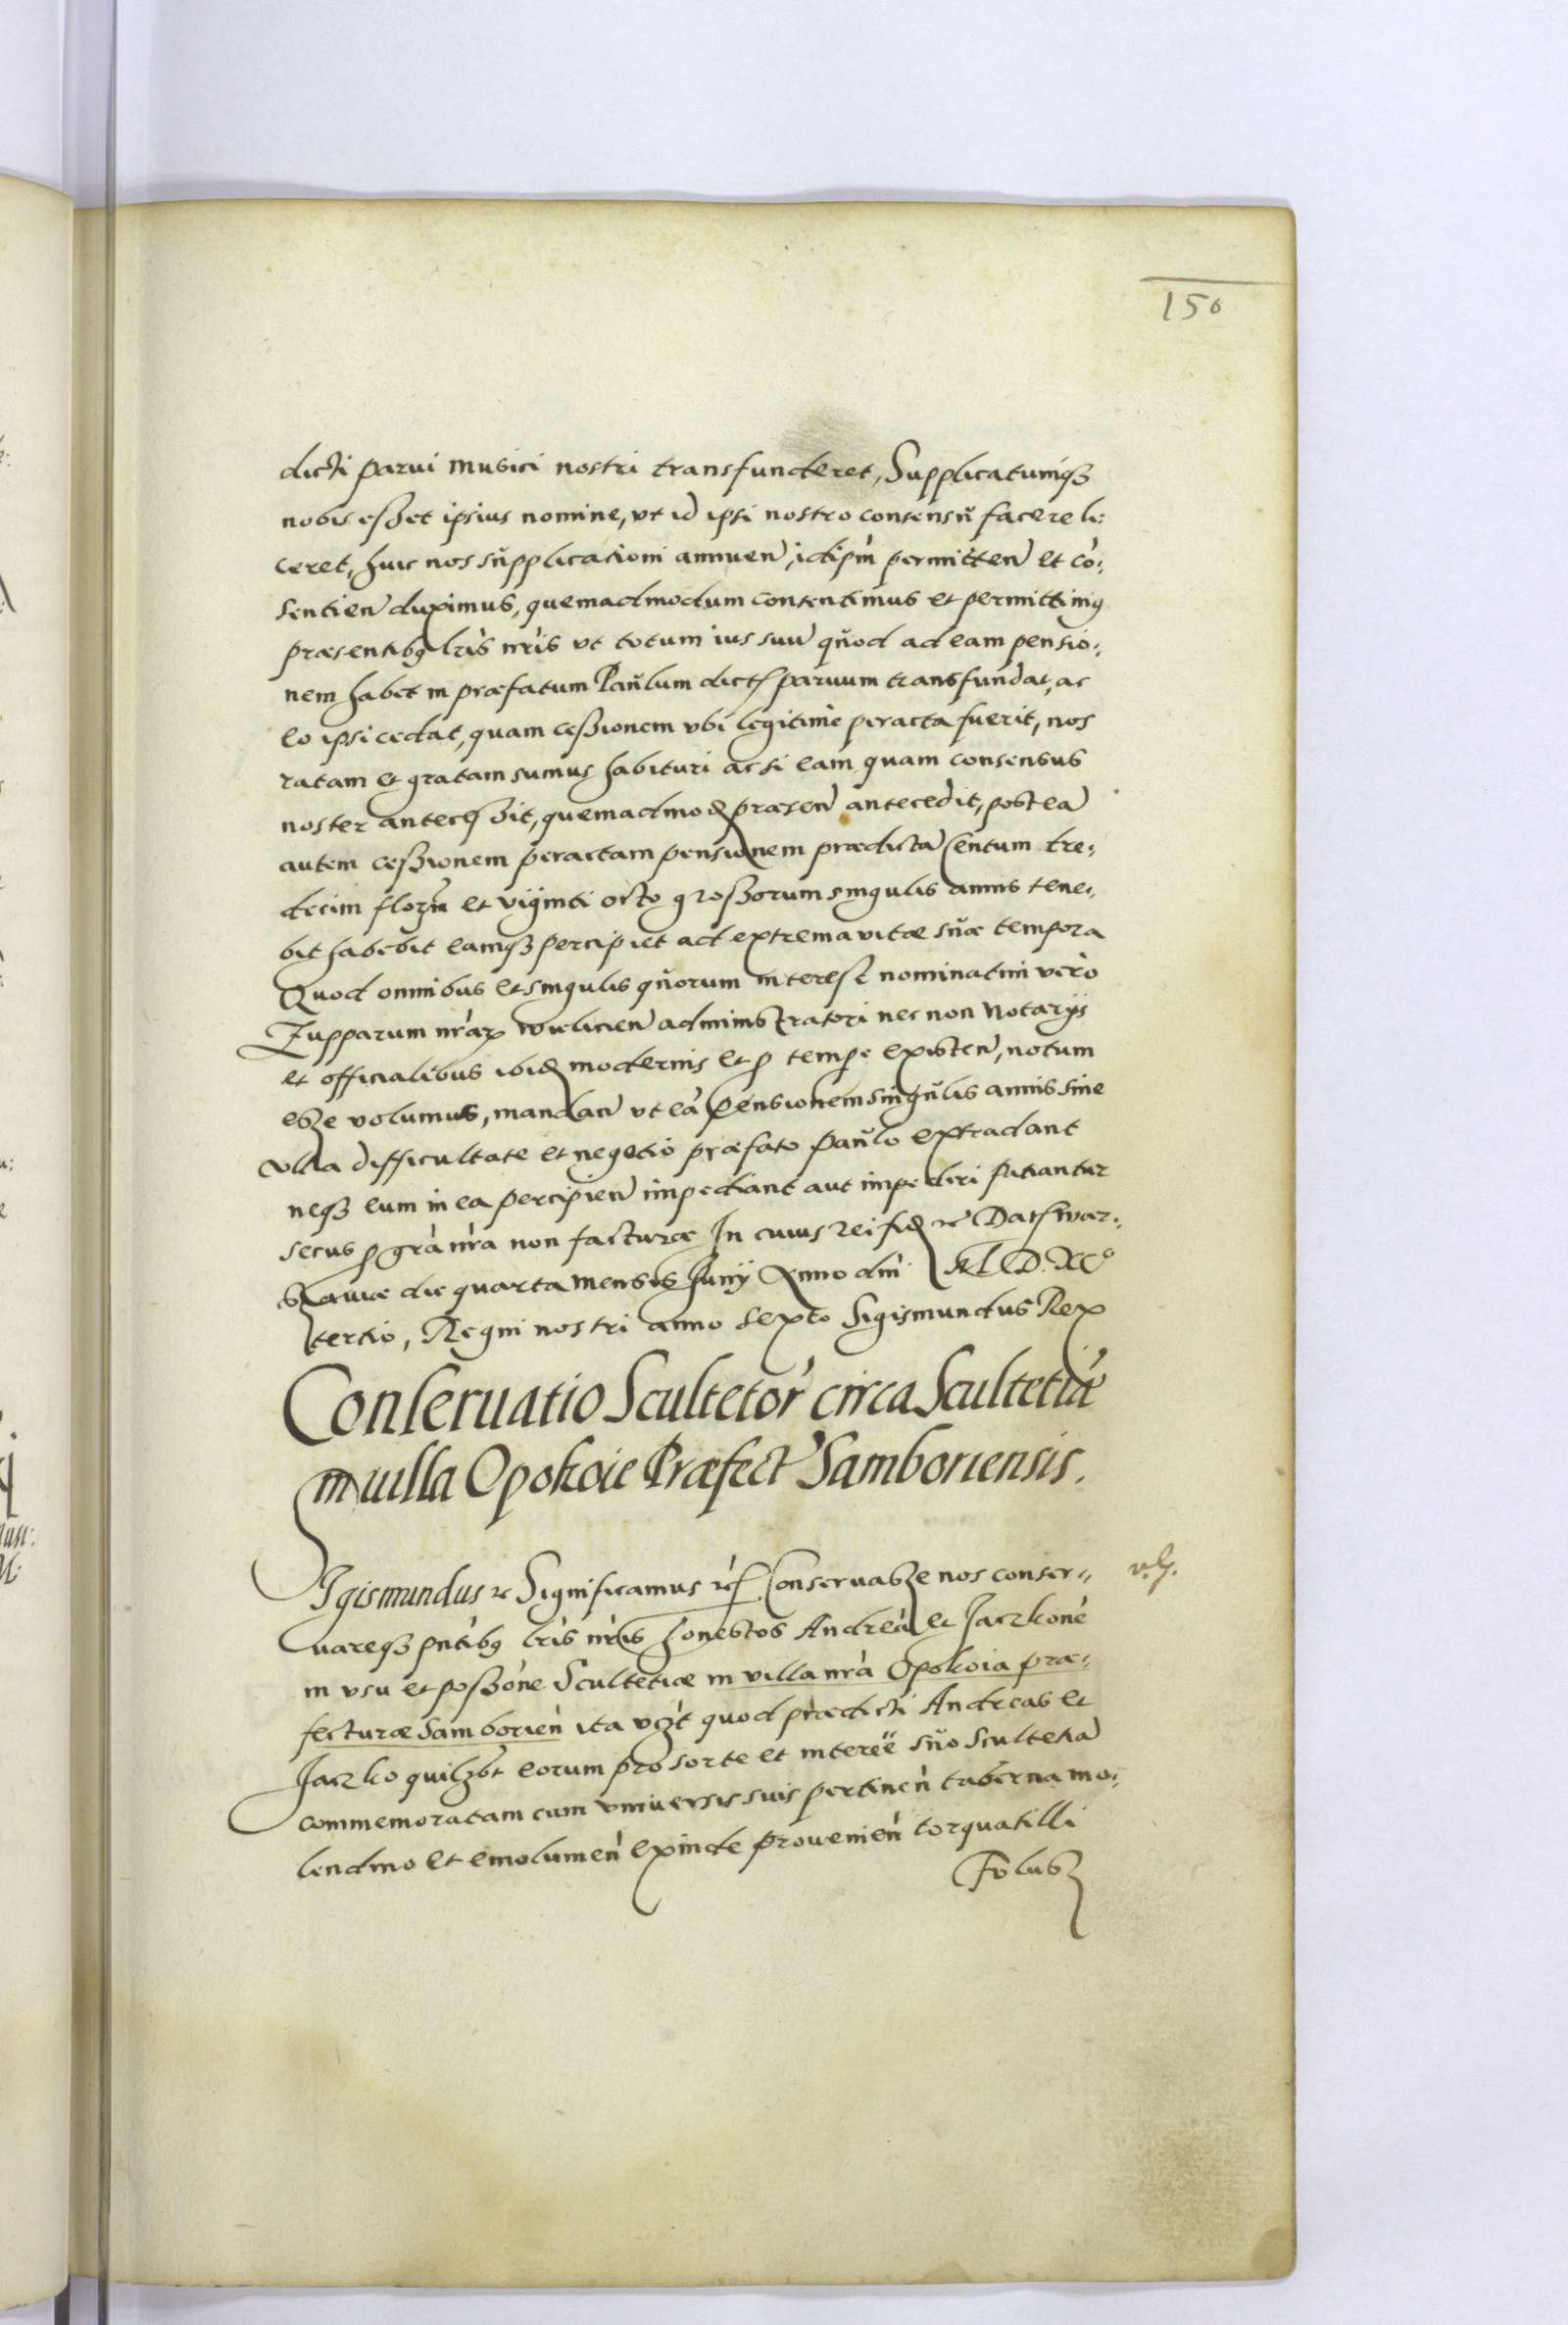 150
dicti parui musici nostri transfunderet, Supplicatumqꝫ
nobis esset ipsius nomine, vt id ipsi nostro consensu facere li:
ceret, huic nos supplicationi annuen̄, idipm̄ permitten̄ et cō:
sentien̄ duximus, quemadmodum consentimus et permittimꝰ
præsentibꝰ lr̄is nr̄is vt totum ius suū quod ad eam pensio:
nem habet in præfatum Paulum dict paruum transfundat, ac
eo ipsi cedat, quam cessionem vbi legitime peracta fuerit, nos
ratam et gratam sumus habituri ac si eam quam consensus
noster antecessit, quemadmodū præsen̄ antecedit, post eā
autem cessionem peractam pensionem prædictā Centum tre:
decim florn̄ et viginti octo grossorum singulis annis tene:
bit habebit eamqꝫ percipiet ad extrema vitæ suæ tempora
Quod omnibus et singulis quorum interest nominatim vero
Zupparum nr̄aꝝ wielicien̄ administratori nec non Notarijs
et officialibus ibidē modernis et ꝓ tempe existen̄, notum
esse volumus, mandan̄ vt eā pensionem singulis annis sine
vlla difficultate et negotio præfato Paulo extradant
neqꝫ eum in ea percipien̄ impediant aut impediri patiantur
secus ꝓ grā nr̄a non facturæ In cuius rei fidē &c Dat War:
sauiæ die quarta mensis Junij Anno dn̄i M. D. XCº
tertio, Regni nostri anno sexto Sigismundus Rex
Conseruatio Scultetor̄ circa Scultetiā
in uilla Opokoie Præfect Samboriensis.
Sigismundus &c Significamus &c Conseruasse nos conser:
uareqꝫ pn̄tibꝰ lr̄is nr̄is honestos Andreā et Jaczkonē
in vsu et possōne Scultetiæ in villa nr̄a Opokoia præ:
fecturæ Samborien̄ ita vꝫt quod prædicti Andreas et
Jaczko quilꝫbt eorum pro sorte et interēe suo Scultetiā
commemoratam cum vniuersis suis pertinen̄ taberna mo:
lendino et emolumen̄ exinde prouenien̄ torquatilli
Folusz